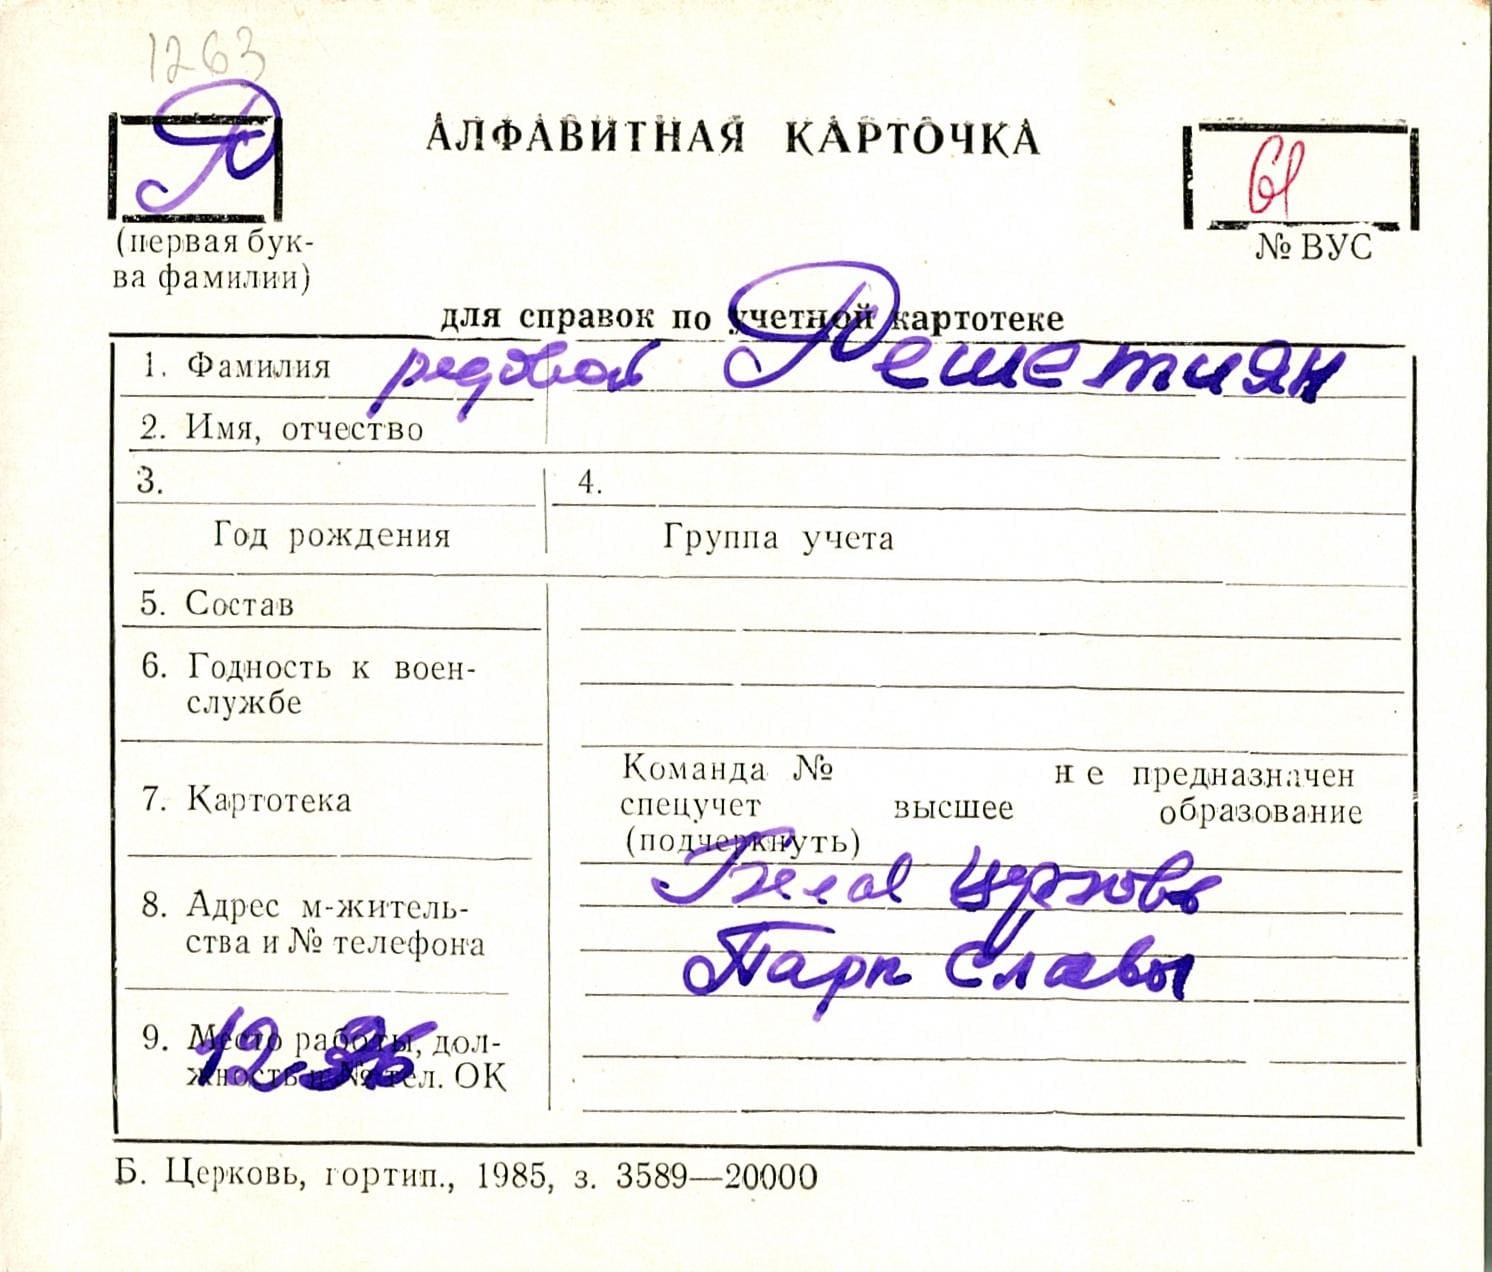 1263
Р
АЛФАВИТНАЯ КАРТОЧКА
61
(первая бук-
ва фамилии)
№ ВУС
для справок по учетной картотеке
1. Фамилия рядовой Решетиян
2. Имя, отчество
3. 4.
Год рождения Группа учета
5. Состав
6. Годность к воен-
службе
7. Картотека
Команда № не предназначен
спецучет высшее образование
(подчеркнуть)
8. Адрес м-житель-
ства и № телефона
Белая Церковь
Парк Славы
9. Место работы, дол-
жность и № тел. ОК
Б. Церковь, гортип., 1985, з. 3589—20000